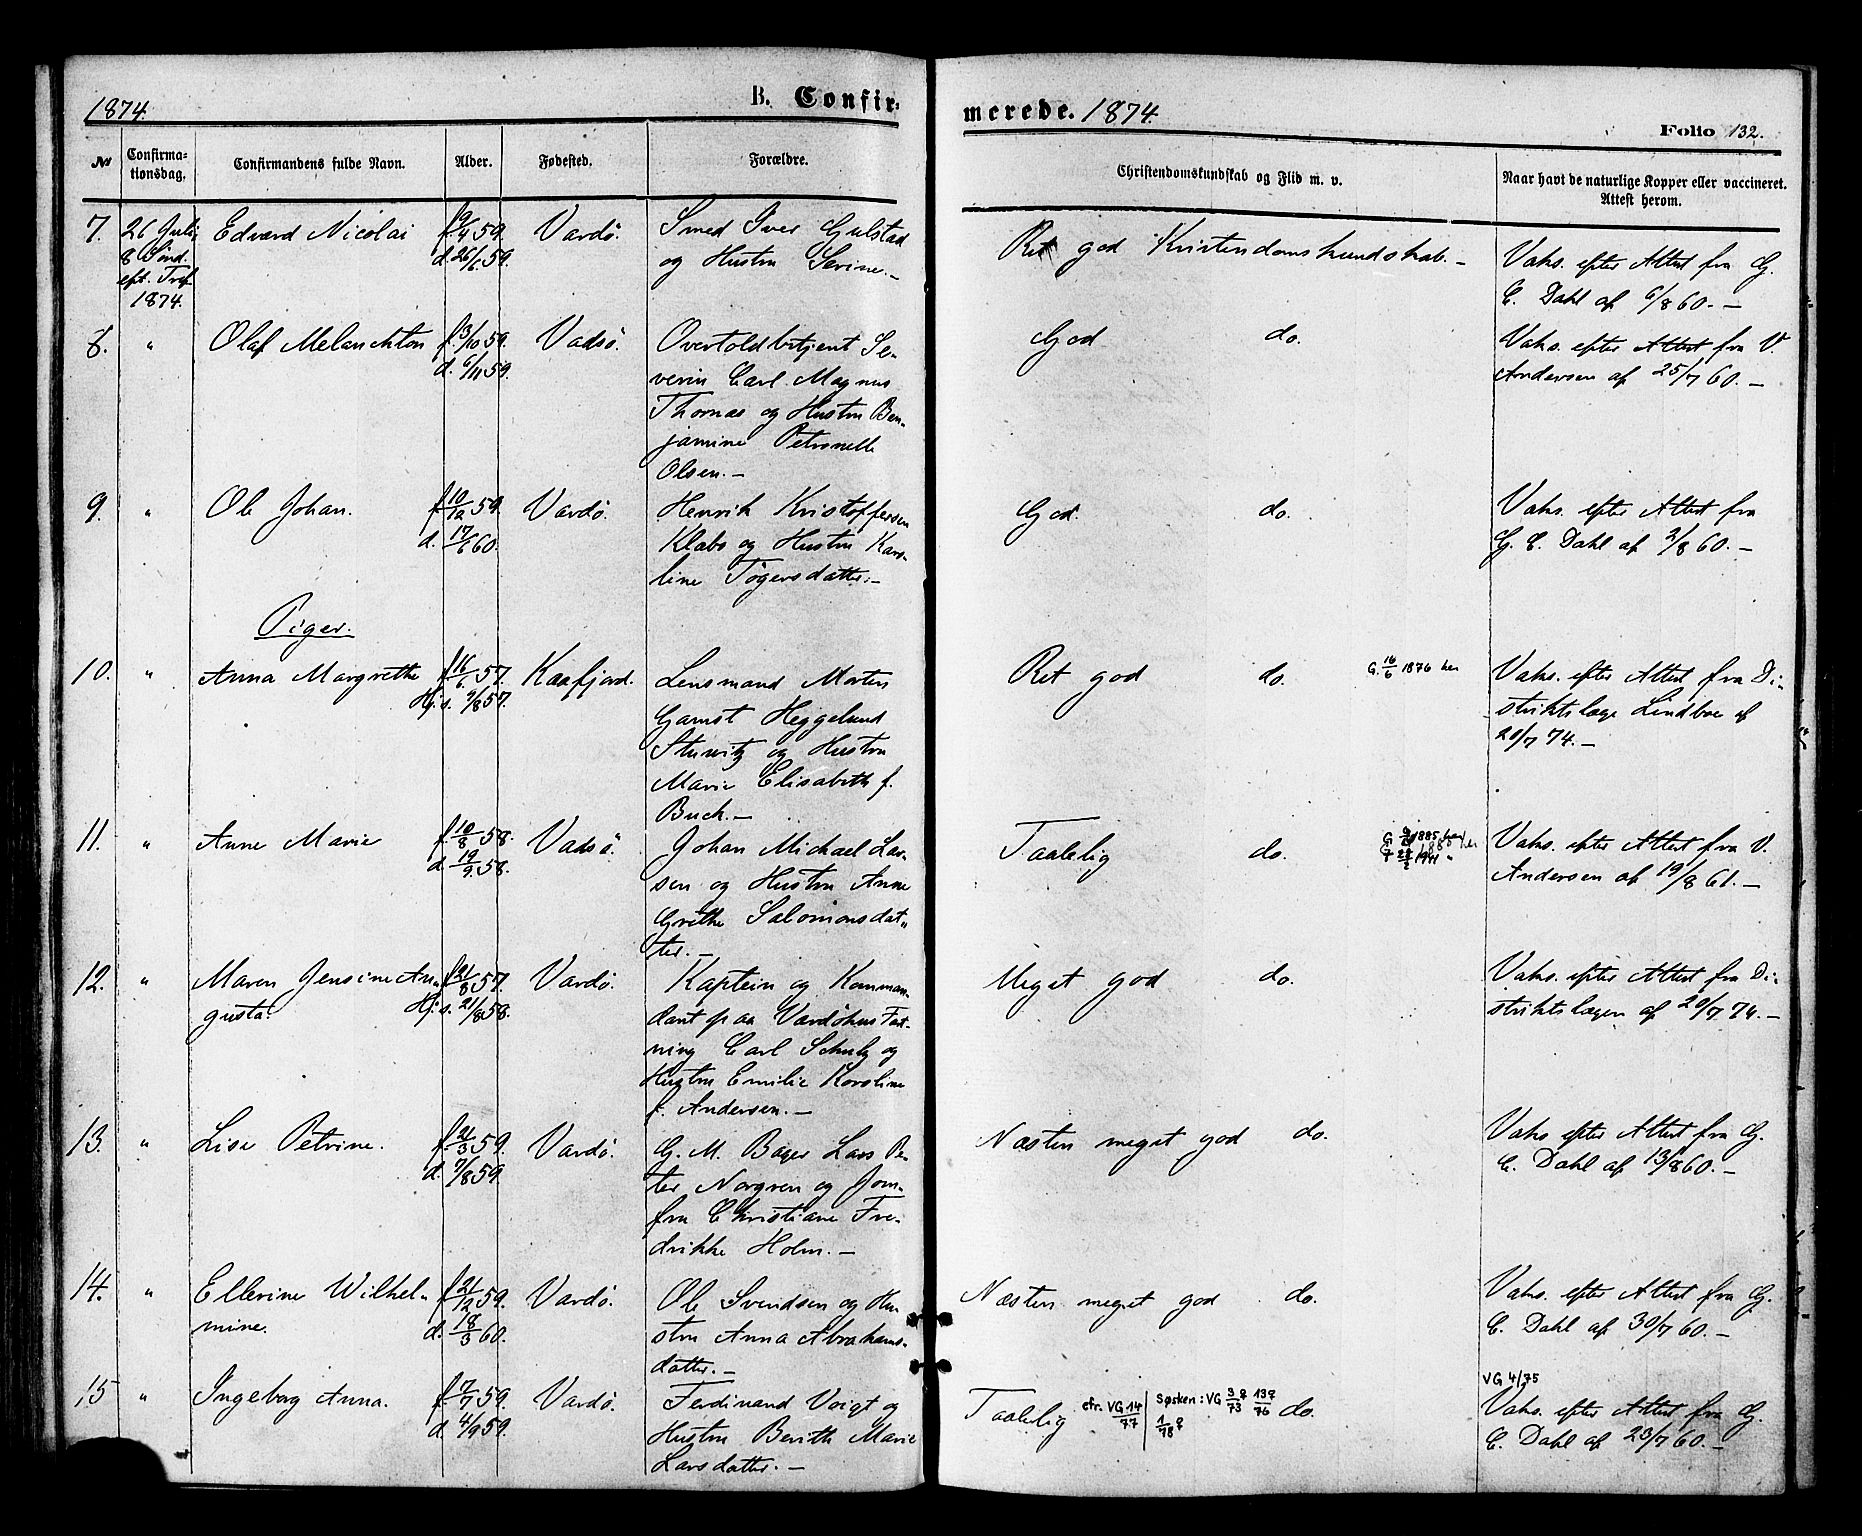 1874.
B. Confir-
merede. 1874.
Folio 132.
No
Confirma-
tionsdag.
Confirmandens fulde Navn.
Alder.
Fødested.
Forældre.
Christendomskundskab og Flid m. v.
Naar havt de naturlige Kopper eller vaccineret.
Attest herom.
7. 26 Juli Edvard Nicolai f. 9/4 59. Vardö. Smed Iver Gulstad Ret god Kristendomskundskab. - Vaks. efter Attest fra G.
8 Sönd. d. 26/6 59. og Hustru Serine. - E. Dahl af 6/8 60. -
eft. Tref.
1874.
8. " Olaf Melanchton f. 3/10 59. Vadsö. Overtoldbetjent Se- God do. Vaks. efter Attest fra V.
d. 6/11 59. verin Carl Magnus Andersen af 25/7 60. -
Thomas og Hustru Ben-
jamine Petronelle
Olsen. -
9. " Ole Johan. f. 10/12 59. Vardö. Henrik Kristoffersen God. do. Vaks. efter Attest fra
d. 17/6 60. Klabo og Hustru Karo- G. E. Dahl af 2/8 60. -
line Tögersdatter. -
Piger.
10. " Anna Margrethe f. 16/6 57. Kaafjord. Lensmand Morten Ret god do. G. 16/6 1876 her Vaks. efter Attest fra Di-
Hj. s. 9/8 57. Garnst Heggelund striktslæge Lindboe af
og Hustru 20/7 74. -
Marie Elisabeth f.
Buch. -
11. " Anne Marie f. 10/8 58. Vadsö. Johan Michael Lar- Taalelig do. Vaks. efter Attest fra V.
d. 19/9 58. sen og Hustru Anne Andersen af 19/8 61. -
Grethe Salomonsdat-
ter. -
12. " Maren Jensine Au- f. 21/8 57. Vardö. Kaptein og Komman- Meget god do. Vaks. efter Attest fra Di-
gusta. Hj. s. 21/8 58. dant paa Vardöhus Fæst- striktslægen af 20/7 74. -
ning Carl Schulz og
Hustru Emilie Karoline
f. Andersen. -
13. " Lise Petrine. f. 21/3 59. Vardö. G. M. Bager Lars Pe- Næsten meget god do. Vaks efter Attest fra G.
d. 7/8 59. ter Norgren og Jom- E. Dahl af 13/8 60. -
fru Christiane Fre-
drikke Holm. -
14. " Ellerine Wilhel- f. 21/12 59. Vardö. Ole Svendsen og Hu- Næsten meget god do. Vaks. efter Attest fra G.
mine. d. 18/3 60. stru Anna Abrahams- E. Dahl af 30/7 60. -
datter. -
VG 4/75
15 " Ingeborg Anna. f. 7/7 59. Vardö. Ferdinand Voigt og Taalelig cfr. VG 14/77 Søsken: VG 3♀/73 13♀/76 do. Vaks. efter Attest fra G.
d. 4/9 59. Hustru Berith Marie 1/78 ♀ E. Dahl af 23/7 60. -
Larsdatter. -